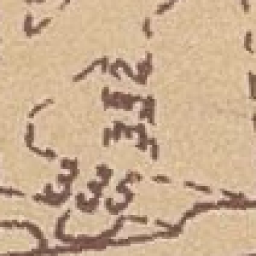 312
335